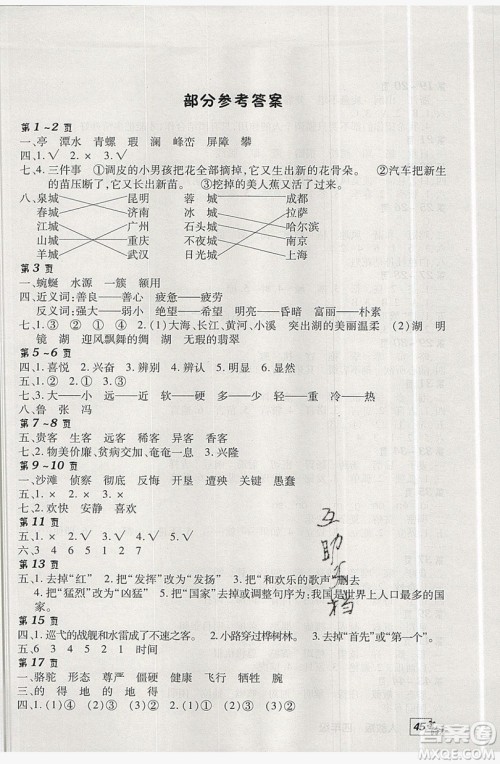 部分参考答案
第1~2页
一、亭 潭水 青螺 瑕 澜 峰峦 屏障 攀
四、1.√ 2.× 3.× 4.√
七、4.三件事 ①调皮的小男孩把花全部摘掉,它又生出新的花骨朵。 ②汽车把新生
的苗压断了,它又长出新苗。 ③挖掉的美人蕉又活过来了。
八、泉城 昆明 蓉城 成都
春城 济南 冰城 拉萨
江城 广州 石头城 哈尔滨
山城 重庆 不夜城 南京
羊城 武汉 日光城 上海
第3页
一、蜿蜒 水源 一簇 额用
四、近义词:善良——善心 疲惫——疲劳
反义词:强大——弱小 绝望——希望 明亮——昏暗 富丽——朴素
七、1.③ ① ④ ① 2.(1)大海、长江、黄河、小溪 突出湖的美丽温柔 (2)湖
明镜 湖 迎风飘舞的绸 无瑕的翡翠
第5~6页
四、1.喜悦 2.兴奋 3.辨别 4.辨认 5.明显 6.显著
七、4.大——小 远——近 软——硬 多——少 轻——重 冷——热
八、鲁 张 冯
第7~8页
五、贵客 生客 远客 稀客 异客 香客
七、2.物美价廉、贫病交加、奄奄一息 3.兴隆
第9~10页
一、沙滩 侦察 彻底 反悔 开垦 遭殃 惭愧 愚蠢
七、2.欢快 安静 喜欢
第11页
五、1.√ 2.× 3.√ 4.√ 5.×
六、3 4 2 1
第13页
四、1.去掉“红” 2.把“发挥”改为“发扬” 3.把“和欢乐的歌声”删去
4.把“猛烈”改为“凶猛” 5.把“国家”去掉或调整句序为:我国是世界上人口最多的
国家。
第15页
四、1.巡弋的战舰和水雷成了不速之客。 2.小路穿过桦树林。 3.去掉“首先”或“第一个”。
五、6 3 4 5 2 1 时间
第17页
一、骆驼 形态 尊严 僵硬 健康 飞行 牺牲 腕
三、的 得 地 的 地 得
四、1.(1)④ (2)③ (3)① (4)② 2.(1)② (2)① (3)④ (4)③
互
助
文
档
45
答案圈